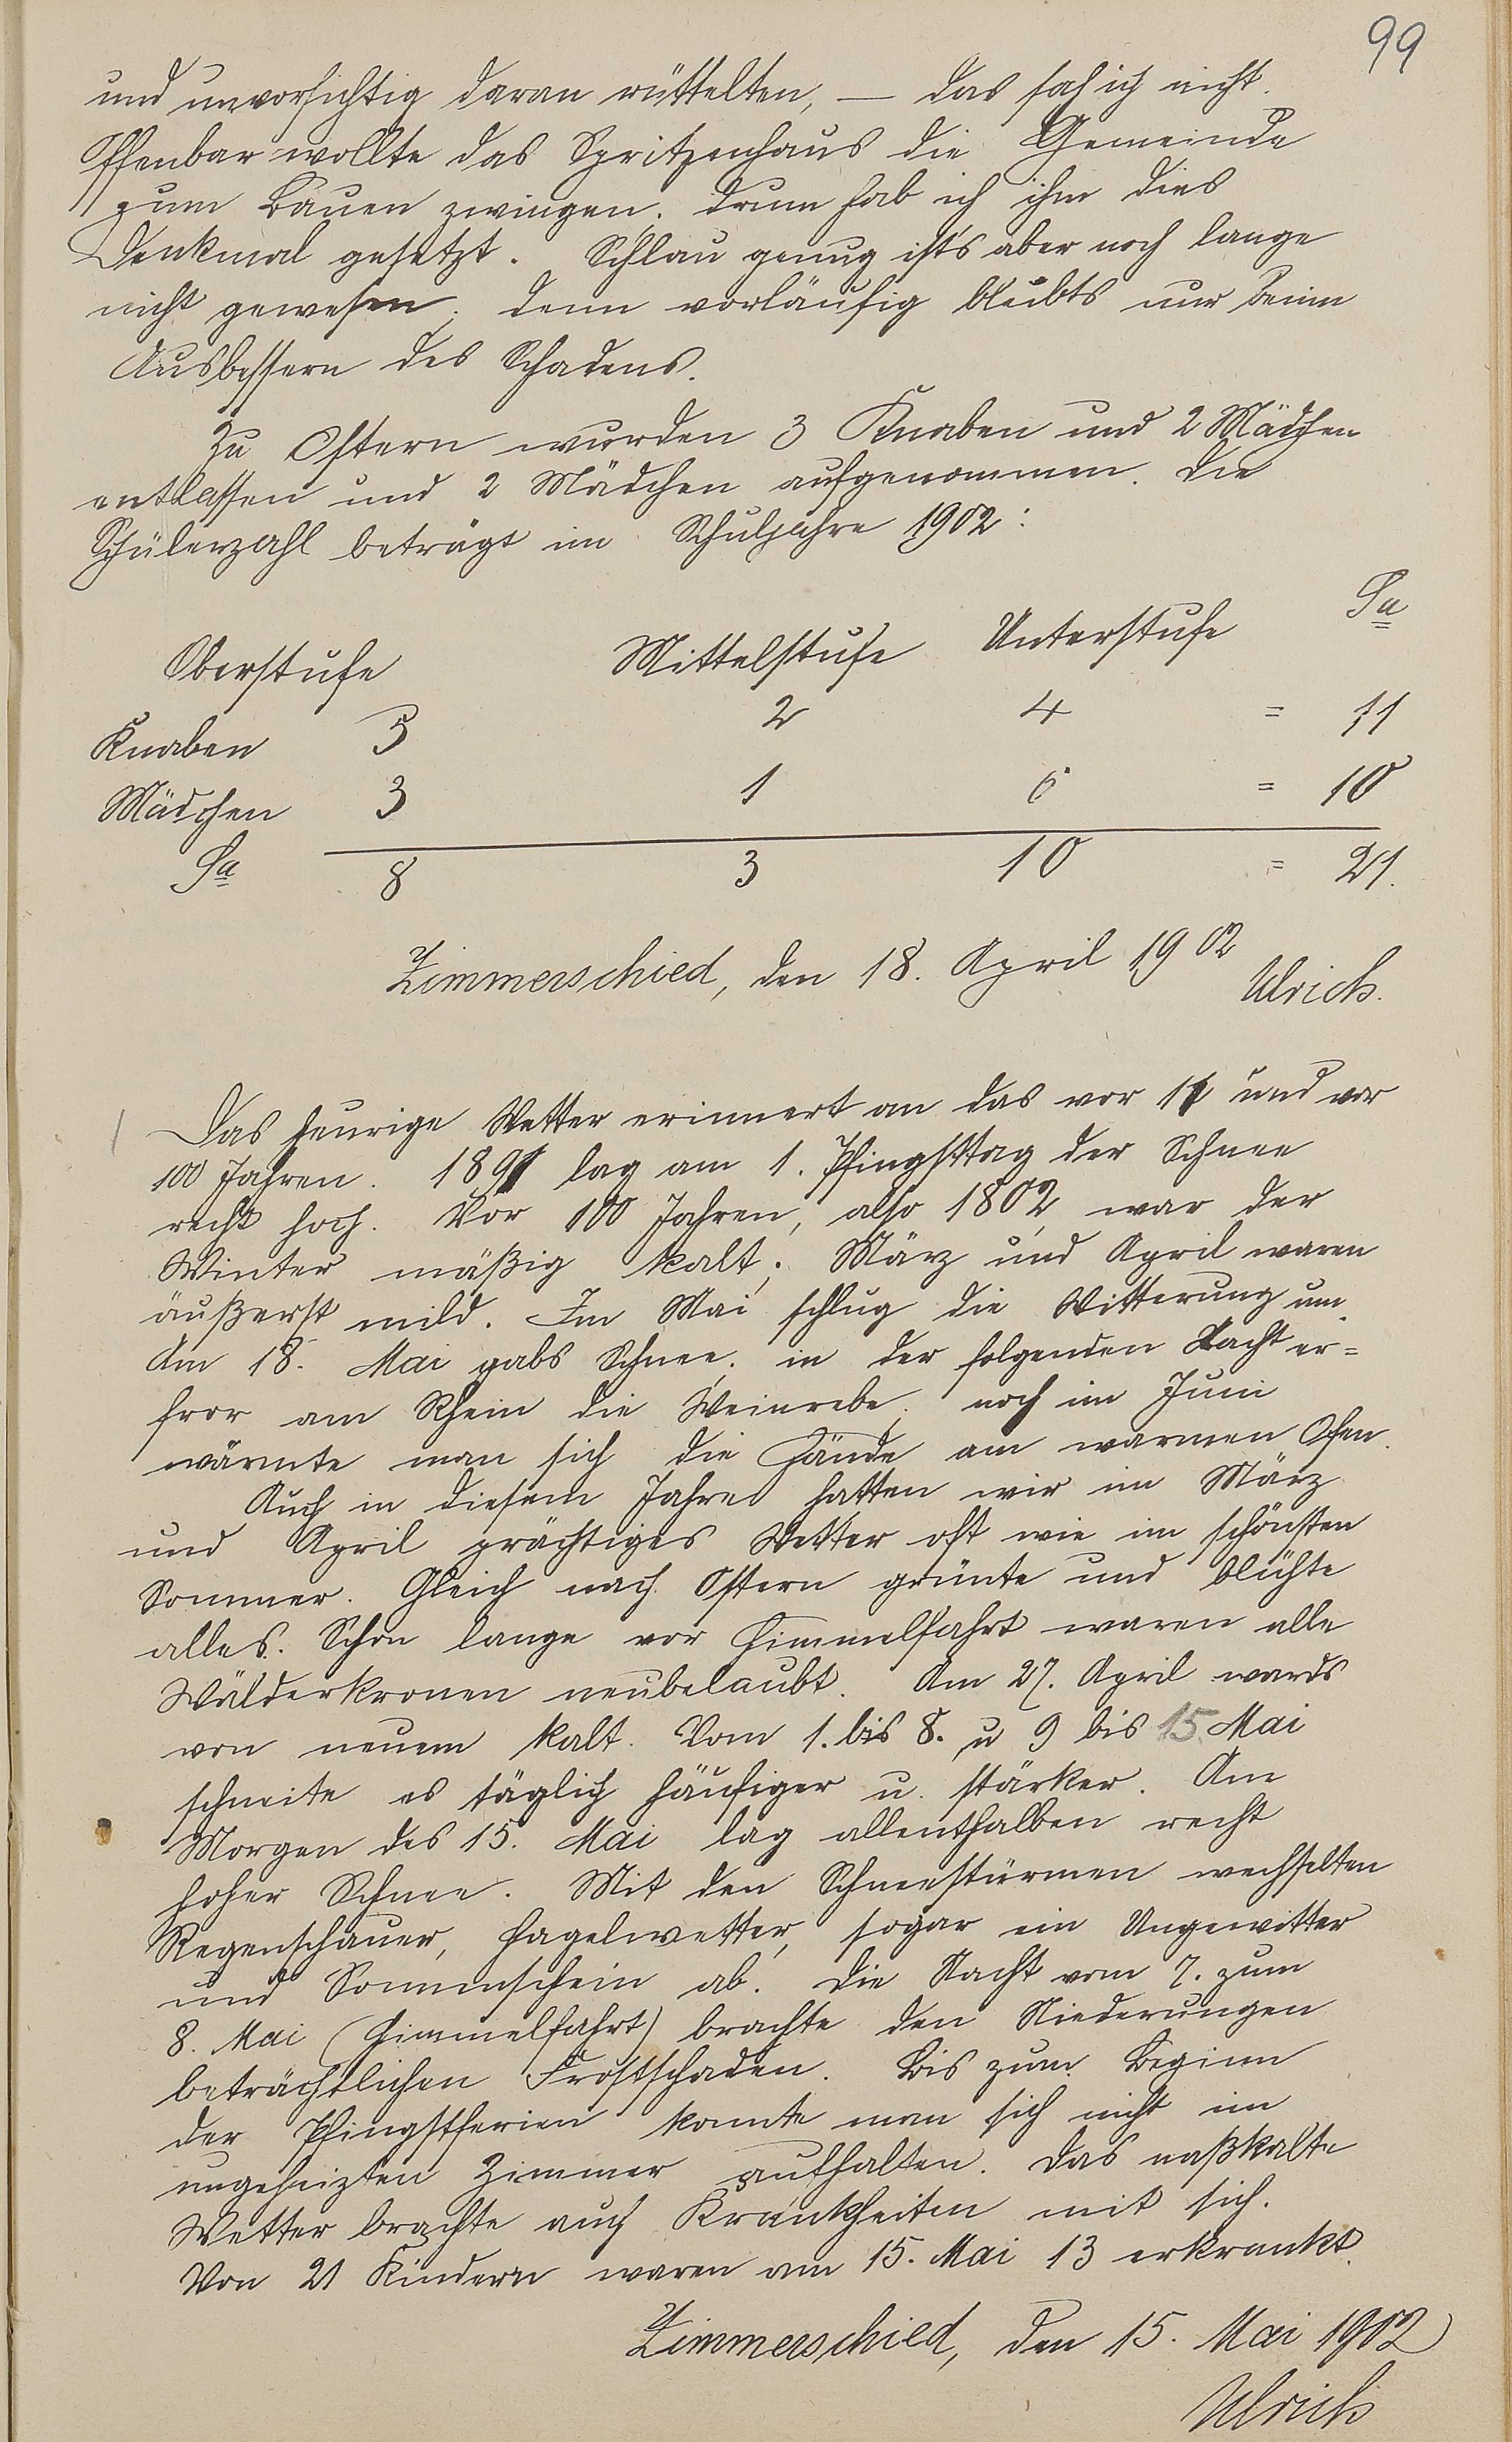 99
und unvorsichtig daran rüttelten, — das sah ich nicht.
Offenbar wollte das Spritzenhaus die Gemeinde
zum Bauen zwingen. Drum hab ich ihm dies
Denkmal gesetzt. Schlau genug ists aber noch lange
nicht gewesen; denn vorläufig bleibts nur beim
Ausbessern des Schadens.
Zu Ostern wurden 3 Knaben und 2 Mädchen
entlassen und 2 Mädchen aufgenommen. Die
Schülerzahl beträgt im Schuljahre 1902:
Oberstufe Mittelstufe Unterstufe Sa
Knaben 5 2 4 = 11
Mädchen 3 1 6 = 10
Sa 8 3 10 = 21.
Zimmerschied, den 18. April 1902
Ulrich.
Das heurige Wetter erinnert an das vor 11 und vor
100 Jahren. 1891 lag am 1. Pfingsttag der Schnee
recht hoch. Vor 100 Jahren, also 1802, war der
Winter mäßig kalt; März und April waren
äußerst mild. Im Mai schlug die Witterung um.
Am 18. Mai gabs Schnee; in der folgenden Nacht er=
fror am Rhein die Weinrebe; noch im Juni
wärmte man sich die Hände am warmen Ofen.
Auch in diesem Jahre hatten wir im März
und April prächtiges Wetter oft wie im schönsten
Sommer. Gleich nach Ostern grünte und blühte
alles. Schon lange vor Himmelfahrt waren alle
Wälderkronen neubelaubt. Am 27. April wards
von neuem kalt. Vom 1. bis 8. u 9 bis 15. Mai
schneite es täglich häufiger u. stärker. Am
Morgen des 15. Mai lag allenthalben recht
hoher Schnee. Mit den Schneestürmen wechselten
Regenschauer, Hagelwetter, sogar ein Ungewitter
und Sonnenschein ab. Die Nacht vom 7. zum
8. Mai (Himmelfahrt) brachte den Niederungen
beträchtlichen Frostschaden. Bis zum Beginn
der Pfingstferien konnte man sich nicht im
ungeheizten Zimmer aufhalten. Das naßkalte
Wetter brachte auch Krankheiten mit sich.
Von 21 Kindern waren am 15. Mai 13 erkrankt.
Zimmerschied, den 15. Mai 1902
Ulrich